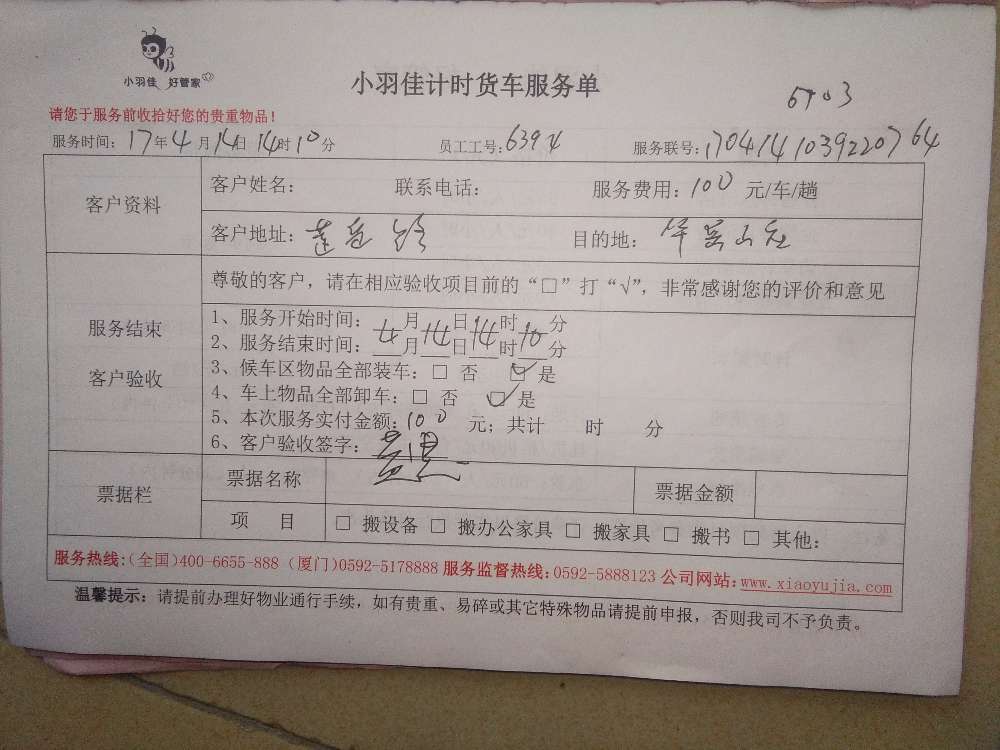 小羽佳 好管家
小羽佳计时货车服务单
请您于服务前收拾好您的贵重物品！
服务时间：17年4月14日14时10分 员工工号： 服务联号：1704141039220764
客户资料
客户姓名： 联系电话： 服务费用：100 元/车/趟
客户地址：莲岳路 目的地：
服务结束
客户验收
尊敬的客户，请在相应验收项目前的“□”打“√”，非常感谢您的评价和意见
1、服务开始时间：4月14日14时10分
2、服务结束时间：___月___日___时___分
3、候车区物品全部装车：□ 否 ☑ 是
4、车上物品全部卸车：□ 否 ☑ 是
5、本次服务实付金额：100 元；共计 时 分
6、客户验收签字：
票据栏
票据名称 票据金额
项 目 □ 搬设备 □ 搬办公家具 □ 搬家具 □ 搬书 □ 其他：
服务热线：（全国）400-6655-888（厦门）0592-5178888 服务监督热线：0592-5888123 公司网站：www.xiaoyujia.com
温馨提示：请提前办理好物业通行手续，如有贵重、易碎或其它特殊物品请提前申报，否则我司不予负责。